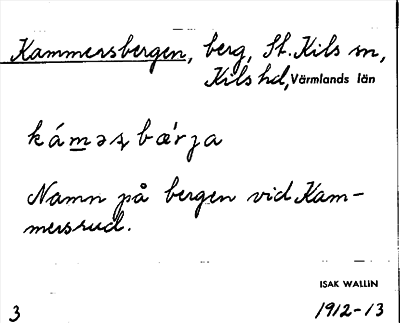 Kammersbergen, berg, St. Kils sn,
Kils hd, Värmlands län
káməʂ bæ'rja
Namn på bergen vid Kam-
mersrud.
ISAK WALLIN
3 1912-13